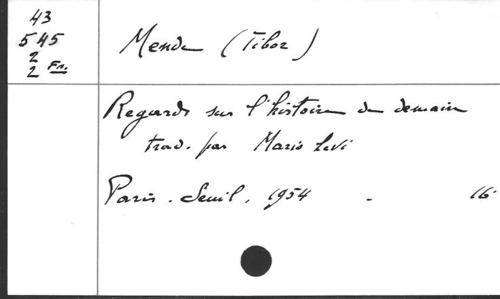 43
545
2
2 Fn.
Mende (Tibor)
Regards sur l'histoire de demain
trad. par Mario Levi
Paris. Seuil. 1954 - 16°